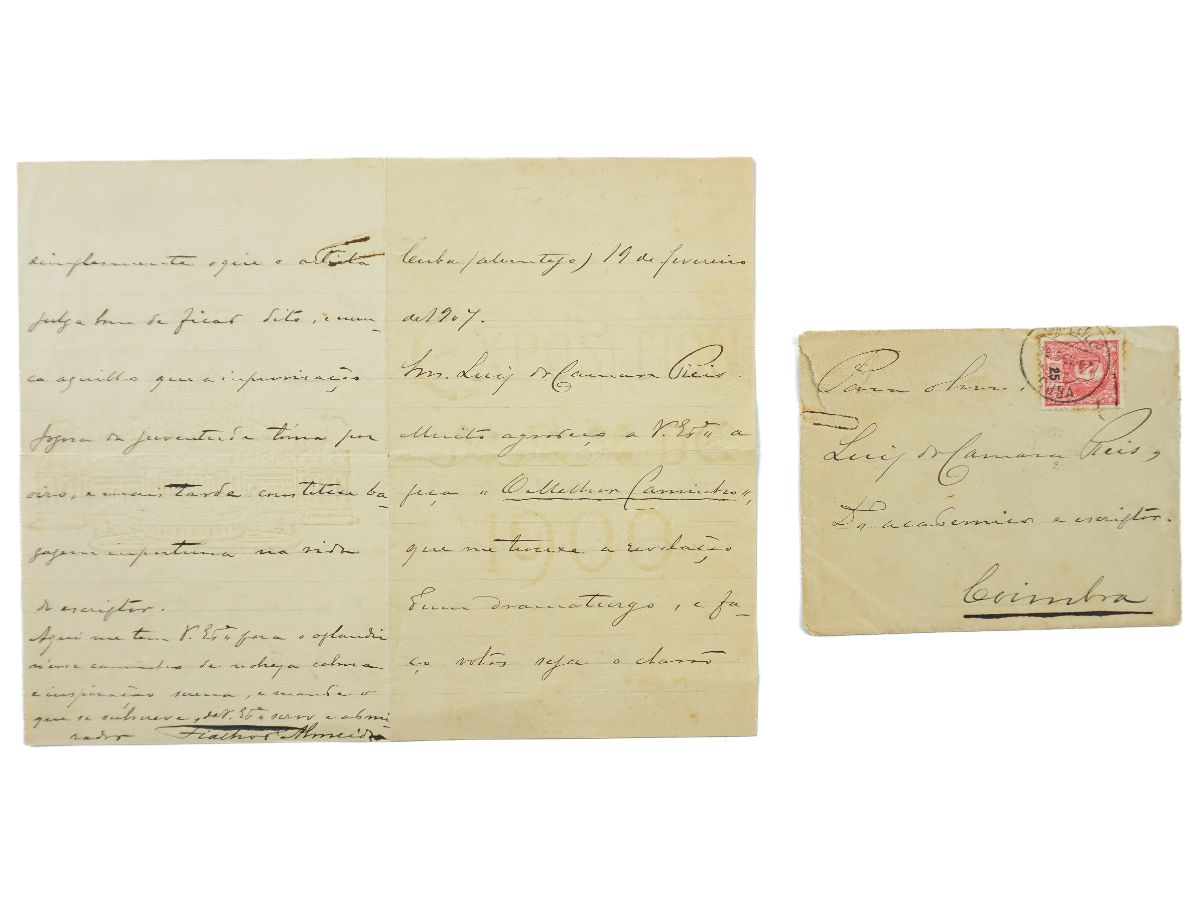 Cuba (alemtejo) 19 de fevereiro
de 1907.
Snr. Luiz da Camara Reis.
Muito agradeço a V. Exª a
peça "O Melhor Caminho",
que me trouxe a revelação
d'um dramaturgo, e fa-
ço votos seja o
simplesmente o que o artista
julga bom de ficar dito, e nun-
ca aquillo que a improvisação
fogosa da juventude tóma por
oiro, e mais tarde constitue ba-
gagem importuna na vida
do escriptor.
Aqui me tem V. Exª para o
n'esse caminho de
e inspiração serena, e mande o
que se subscreve, de V. Exª servo e admi-
rador Fialho d'Almeida
Para o Snr.
Luiz da Camara Reis,
Dº academico e escriptor.
Coimbra
25
CUBA
1909